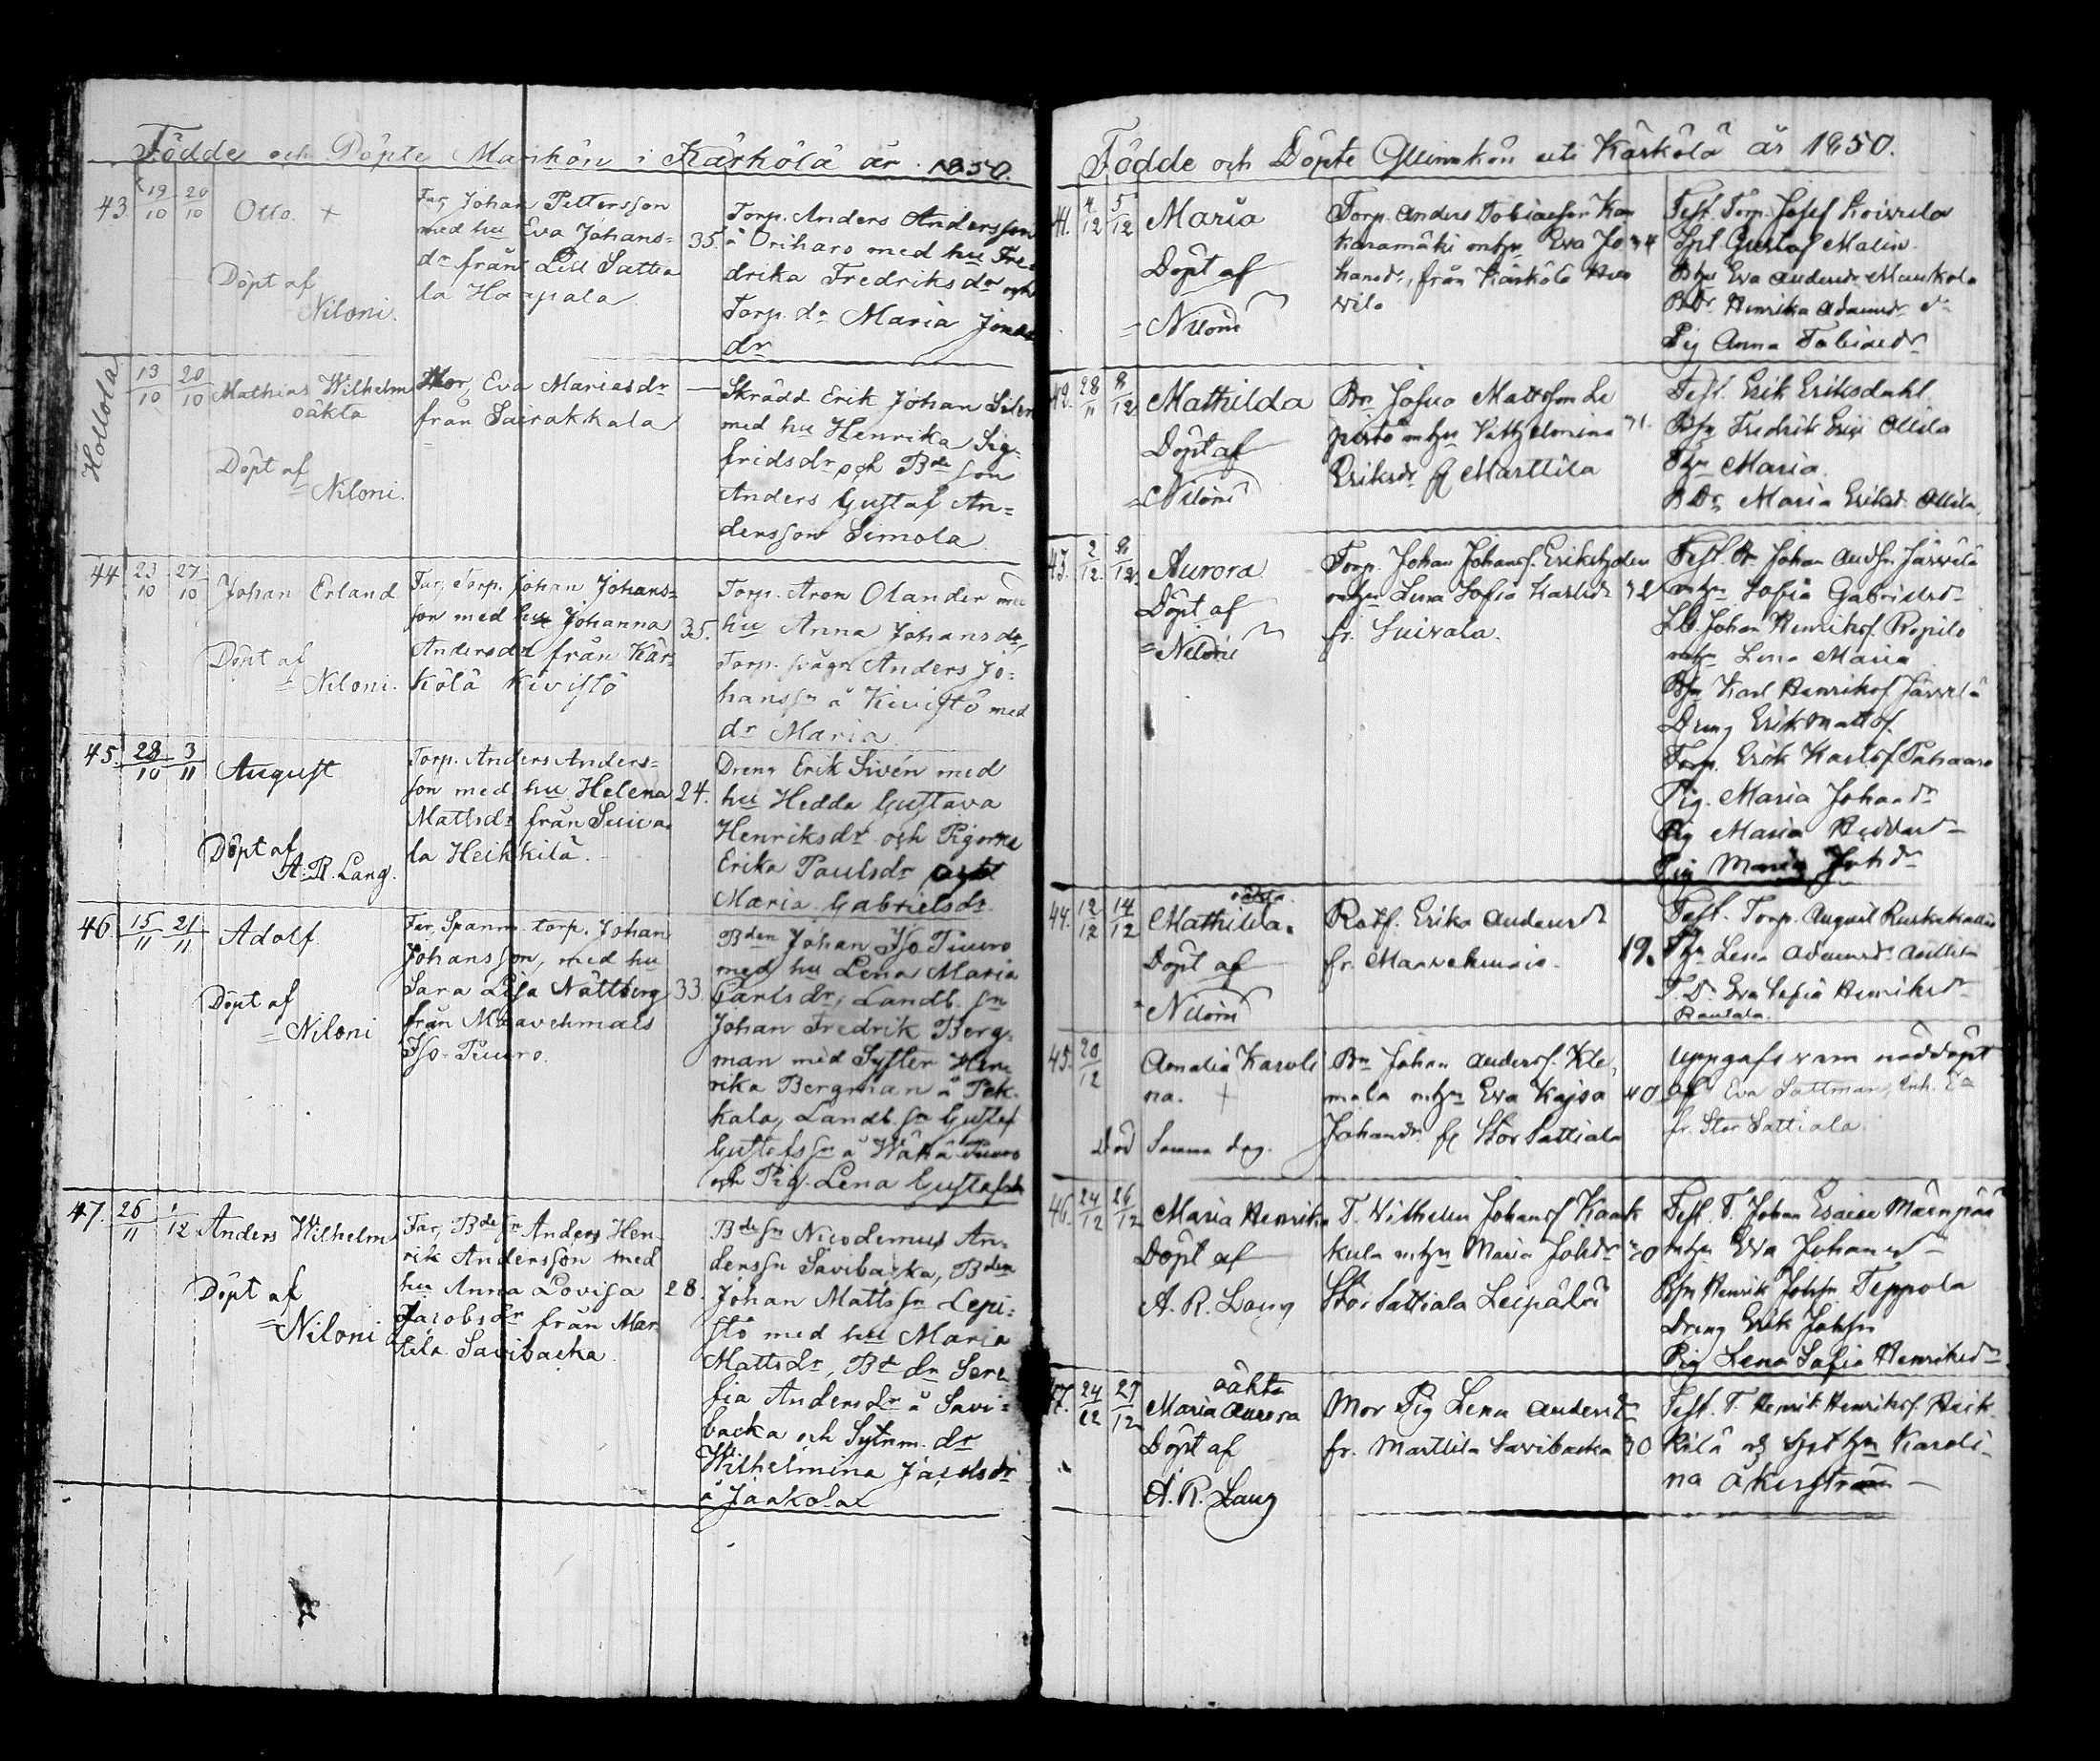 Födde och Döpte Mankön i Kärkölä år 1850.
43. 19/10 20/10 Otto. +
Döpt af
Niloni.
Far, Johan Pettersson
med hu Eva Johans=
dr från Lill Sattia
la Haapala.
35.
Torp. Anders Andersson
å Oriharo med hu Fre=
drika Fredriksdr och
Torp. dr Maria Jonas
dr
Hollola
13/10 20/10 Mathias Wilhelm
oäkta
Döpt af
= Niloni.
Mor, Eva Mariasdr
från Sairakkala
—
Skrädd Erik Johan Silen
med hu Henrika Sig=
fridsdr och Bde son
Anders Gustaf An=
dersson Simola
44. 23/10 27/10 Johan Erland
Döpt af
= Niloni.
Far, Torp. Johan Johans=
son med hu Johanna
Andersdr från Kär=
kölä Kivistö
35.
Torp. Aron Olander med
hu Anna Johansdr,
Torp. svågr Anders Jo=
hanssn å Kivistö med
dr Maria
45. 28/10 3/11 August
Döpt af
A. R. Lang.
Torp. Anders Anders=
son med hu Helena
Mattsdr från Suiva
la Heikkilä.
24.
Dreng Erik Sivén med
hu Hedda Gustava
Henriksdr och Pigorna
Erika Paulsdr och
Maria Gabrielsdr.
46. 15/11 21/11 Adolf.
Döpt af
= Niloni
Far, Spanm. torp. Johan
Johansson, med hu
Sara Lisa Nättberg
från Maavehmais
Iso-Tuuro.
33.
Bden Johan Iso Tuuro
med hu Lena Maria
Carlsdr, Landb. sn
Johan Fredrik Berg=
man med Syster Hen
rika Bergman å Pek=
kala, Landb. sn Gustaf
Gustafssn å Wähä Tuuro
och Pig. Lena Gustafsdr
47. 26/11 1/12 Anders Wilhelm
Döpt af
= Niloni
Far, Bde sn Anders Hen=
rik Andersson med
hu Anna Lovisa
Jacobsdr från Mar
tila Savibacka.
28.
Bde sn Nicodemus An=
derssn Savibacka, Bden
Johan Mattssn Lepi=
stö med hu Maria
Mattsdr, Bd dr Sere
fia Andersdr å Savi=
backa och Sytnm. dr
Wilhelmina Jacobsdr
å Jaakola
Födde och Döpte Qvinnkön uti Kärkölä år 1850.
41. 4/12 5/12 Maria
Döpt af
= Niloni
Torp. Anders Tobiasson Kan
karamäki m hu Eva Jo
hansdr, från Kärkölä Huo
vila
34
Test. Torp. Josef Koivula
Spl. Gustaf Malin.
Bhu Eva Andersdr Maukola
BDr Henrika Adamsdr
Pig Anna Tobiasdr
42. 28/11 8/12 Mathilda
Döpt af
= Niloni
Bn Josua Mattsson Le
pistö m hu Vilhelmina
Eriksdr fr Marttila
31.
Test. Erik Eriksdahl.
Bsn Fredrik Eriss Ollila
Thu Maria.
BDr Maria Eriksdr Ollila
43. 2/12 8/12 Aurora.
Döpt af
= Niloni
Torp. Johan Johanss. Erikstzolm
m hu Lena Sofia Karlsdr
fr. Suivala.
32
Test. Johan Andsn Järvelä
m hu Sofia Gabrielsdr
LB. Johan Henrikss.
m hu Lena Maria
Bsn Karl Henrikss. Järvelä
Dreng Erik Mattss.
Torp. Erik Karlss.
Pig. Maria Johansdr
Pig Maria
Pig Maria Johdr
44. 12/12 14/12 oäkta
Mathilda.
Döpt af
= Niloni
Rotf. Erika Andersdr
fr. Maavehmais.
19.
Test. Torp. August
Thu Lena Adamsdr
T. D. Eva Sofia Henriksdr
Rautala.
45. 20/12 Amalia Karoli
na. +
Död Samma dag.
Bn Johan Anderss. Kle,
mala m hu Eva Kajsa
Johansdr fr Stor Sattiala
40
Uppgafs vara nöddöpt
af Eva Sattman, Inh. Ea
fr. Stor Sattiala
46. 24/12 26/12 Maria Henrika
Döpt af
A. R. Lang
T. Wilhelm Johanss Kaak
kula m hu Maria Johdr
Stor Sattiala Leipälä
20
Test. T. Johan Esaiss Märnpää
m hu Eva Johansdr
Bsn Henrik Johsn Teppola
Dreng Erik Johsn
Pig Lena Sofia Henriksdr
47. 24/12 27/12 oäkta
Maria Aurora
Döpt af
A. R. Lang
Mor Pig Lena Andersdr
fr. Marttila Savibacka
30
Test. T. Henrik Henrikss. Heik
kilä och Spl hu Karoli=
na Åkerström —